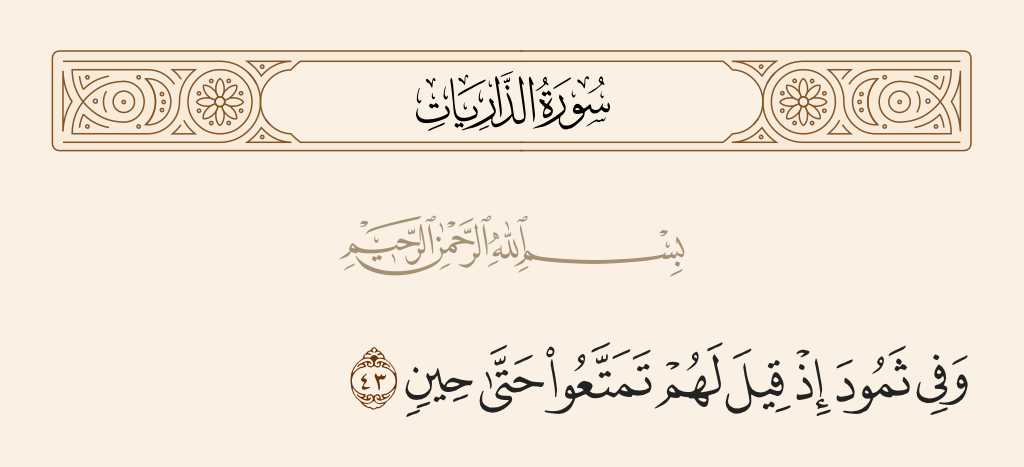 سُورَةُ الذَّارِيَاتِ
بِسْمِ ٱللَّهِ ٱلرَّحْمَٰنِ ٱلرَّحِيمِ
وَفِي ثَمُودَ إِذْ قِيلَ لَهُمْ تَمَتَّعُوا۟ حَتَّىٰ حِينٍ ٤٣